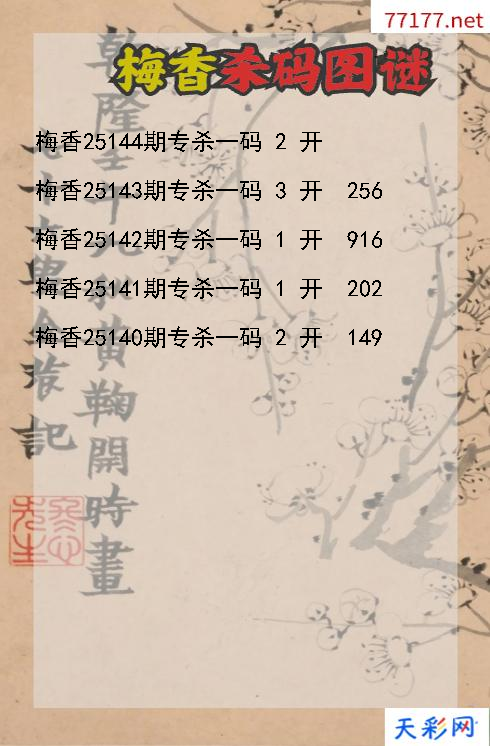 77177.net
梅香杀码图谜
梅香25144期专杀一码 2 开
梅香25143期专杀一码 3 开 256
梅香25142期专杀一码 1 开 916
梅香25141期专杀一码 1 开 202
梅香25140期专杀一码 2 开 149
鞠開時畫
記
先生
天彩网